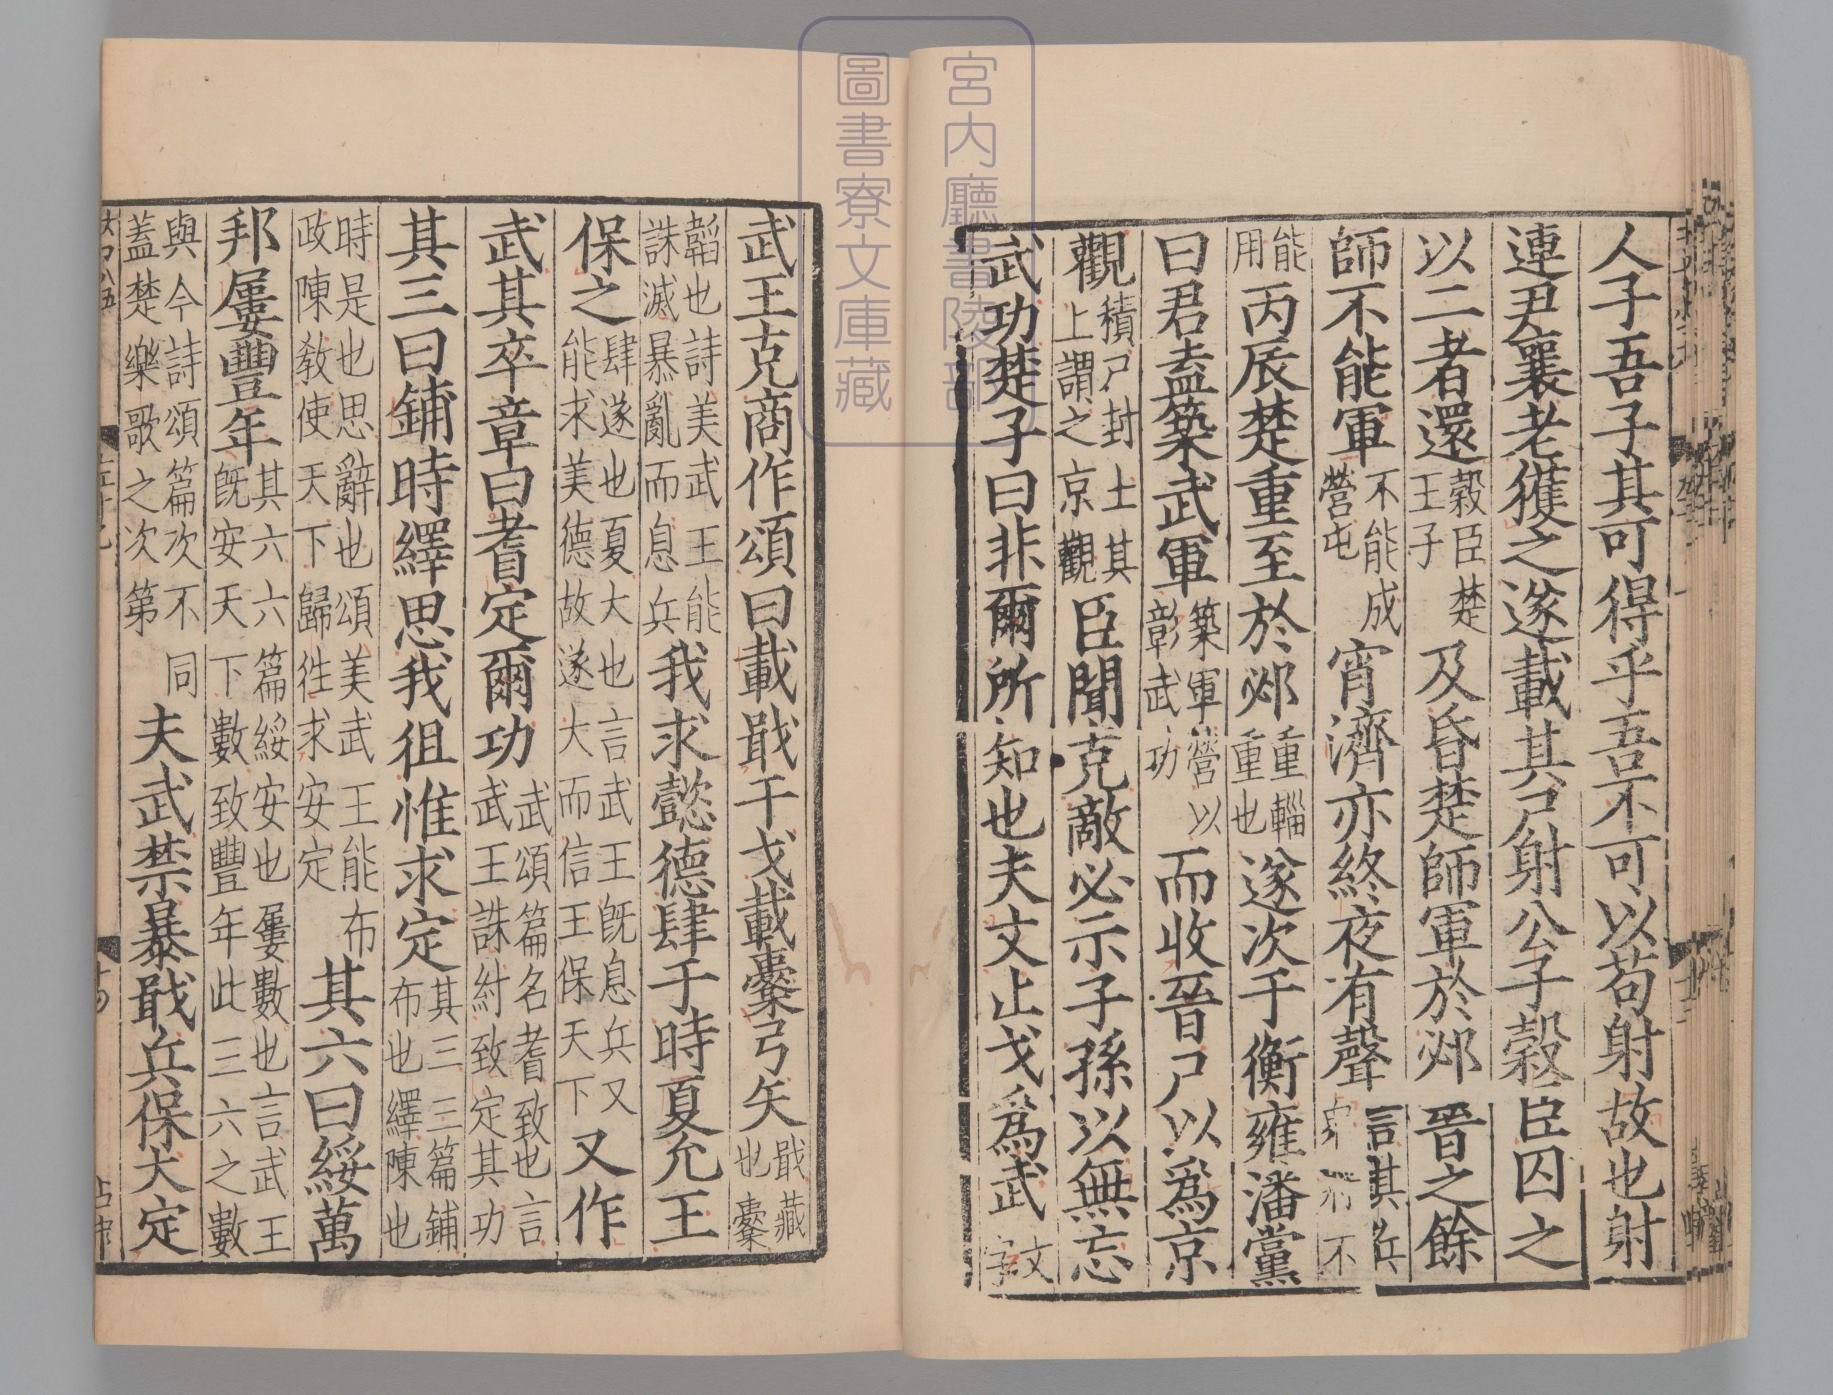 人子吾子其可得乎吾不可以苟射故也射
連尹襄老獲之遂載其尸射公子穀臣囚之
以二者還穀臣楚王子及昏楚師軍於邲晉之餘
師不能軍不能成營屯宵濟亦終夜有聲言其兵不
能用丙辰楚重至於邲重輜重也遂次于衡雍潘黨
曰君盍築武軍築軍營以彰武功而收晉尸以為京
觀積尸封土其上謂之京觀臣聞克敵必示子孫以無忘
武功楚子曰非爾所知也夫文止戈爲武文字
武王克商作頌曰載戢干戈載櫜弓矢戢藏也櫜
韜也詩美武王能誅滅暴亂而息兵我求懿德肆于時夏允王
保之肆遂也夏大也言武王旣息兵又能求美德故遂大而信王保天下又作
武其卒章曰耆定爾功武頌篇名耆致也言武王誅紂致定其功
其三曰鋪時繹思我徂惟求定其三三篇鋪布也繹陳也
時是也思辭也頌美武王能布政陳敎使天下歸往求安定其六曰綏萬
邦屢豐年其六六篇綏安也屢數也言武王旣安天下數致豐年此三六之數
與今詩頌篇次不同蓋楚樂歌之次第夫武禁暴戢兵保大定
宮内廳書陵部
圖書寮文庫藏